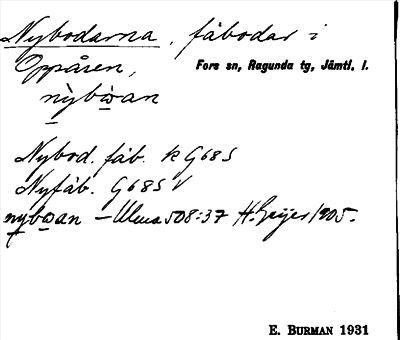 Nybodarna, fäbodar i
Oppåsen, Fors sn, Ragunda tg, Jämtl. l.
nỳbὼan
Nybod. fäb. k G68S
Nyfäb. G68S V
nybωan – Ulma 508:37 H. Geijer 1905.
E. BURMAN 1931